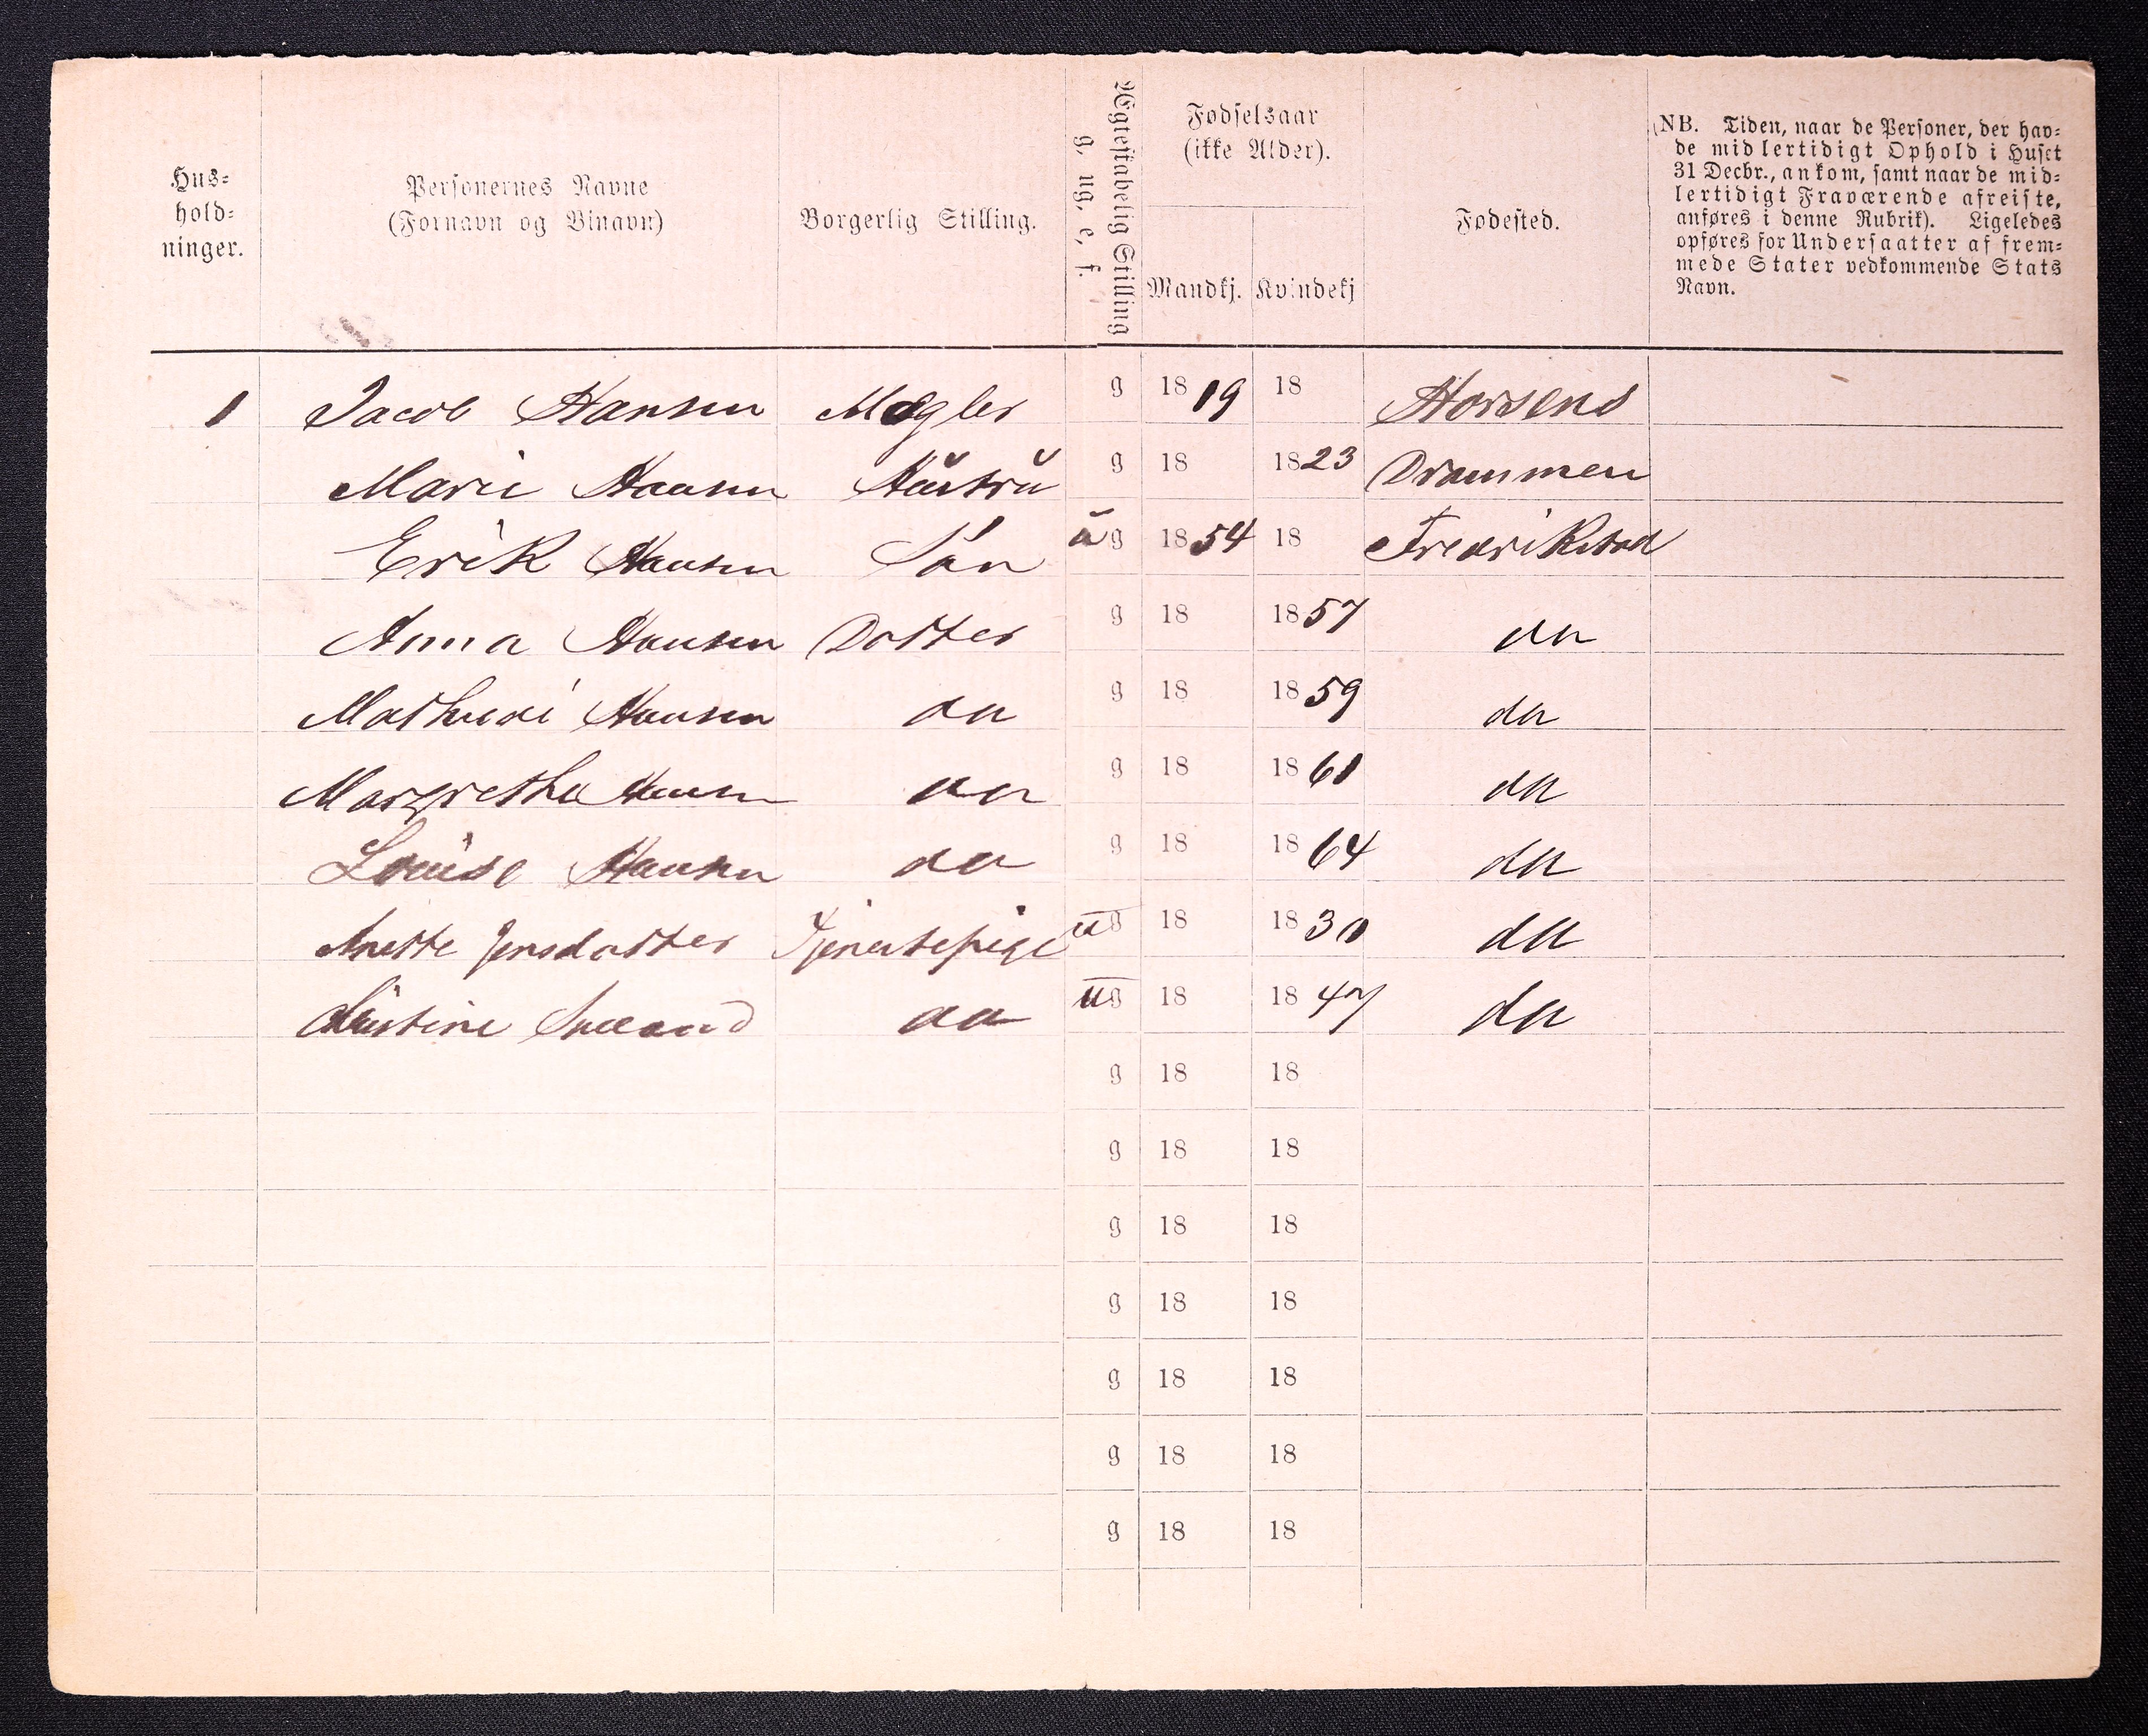 Hus-
hold-
ninger.
Personernes Navne
(Fornavn og Binavn)
Borgerlig Stilling.
Ægteskabelig Stilling
g. ug. e. f.
Fødselsaar
(ikke Alder).
Mandkj. Kvindekj
Fødested.
(NB. Tiden, naar de Personer, der hav-
de midlertidigt Ophold i Huset
31 Decbr., ankom, samt naar de mid-
lertidigt Fraværende afreiste,
anføres i denne Rubrik). Ligeledes
opføres for Undersaatter af frem-
mede Stater vedkommende Stats
Navn.
1 Jacob Hansen Mægler g 1819 18 Horsens
Marie Hansen Hustru g 18 1823 Drammen
Erik Hansen Sön ug 1854 18 Fredrikstad
Anna Hansen Dotter g 18 1857 do
Hansen do g 18 1859 do
Margrethe Hansen do g 18 1861 do
Louise Hansen do g 18 1864 do
Anette Jensdatter Tjenestepige ug 18 1830 do
Kristine do ug 18 1847 do
g 18 18
g 18 18
g 18 18
g 18 18
g 18 18
g 18 18
g 18 18